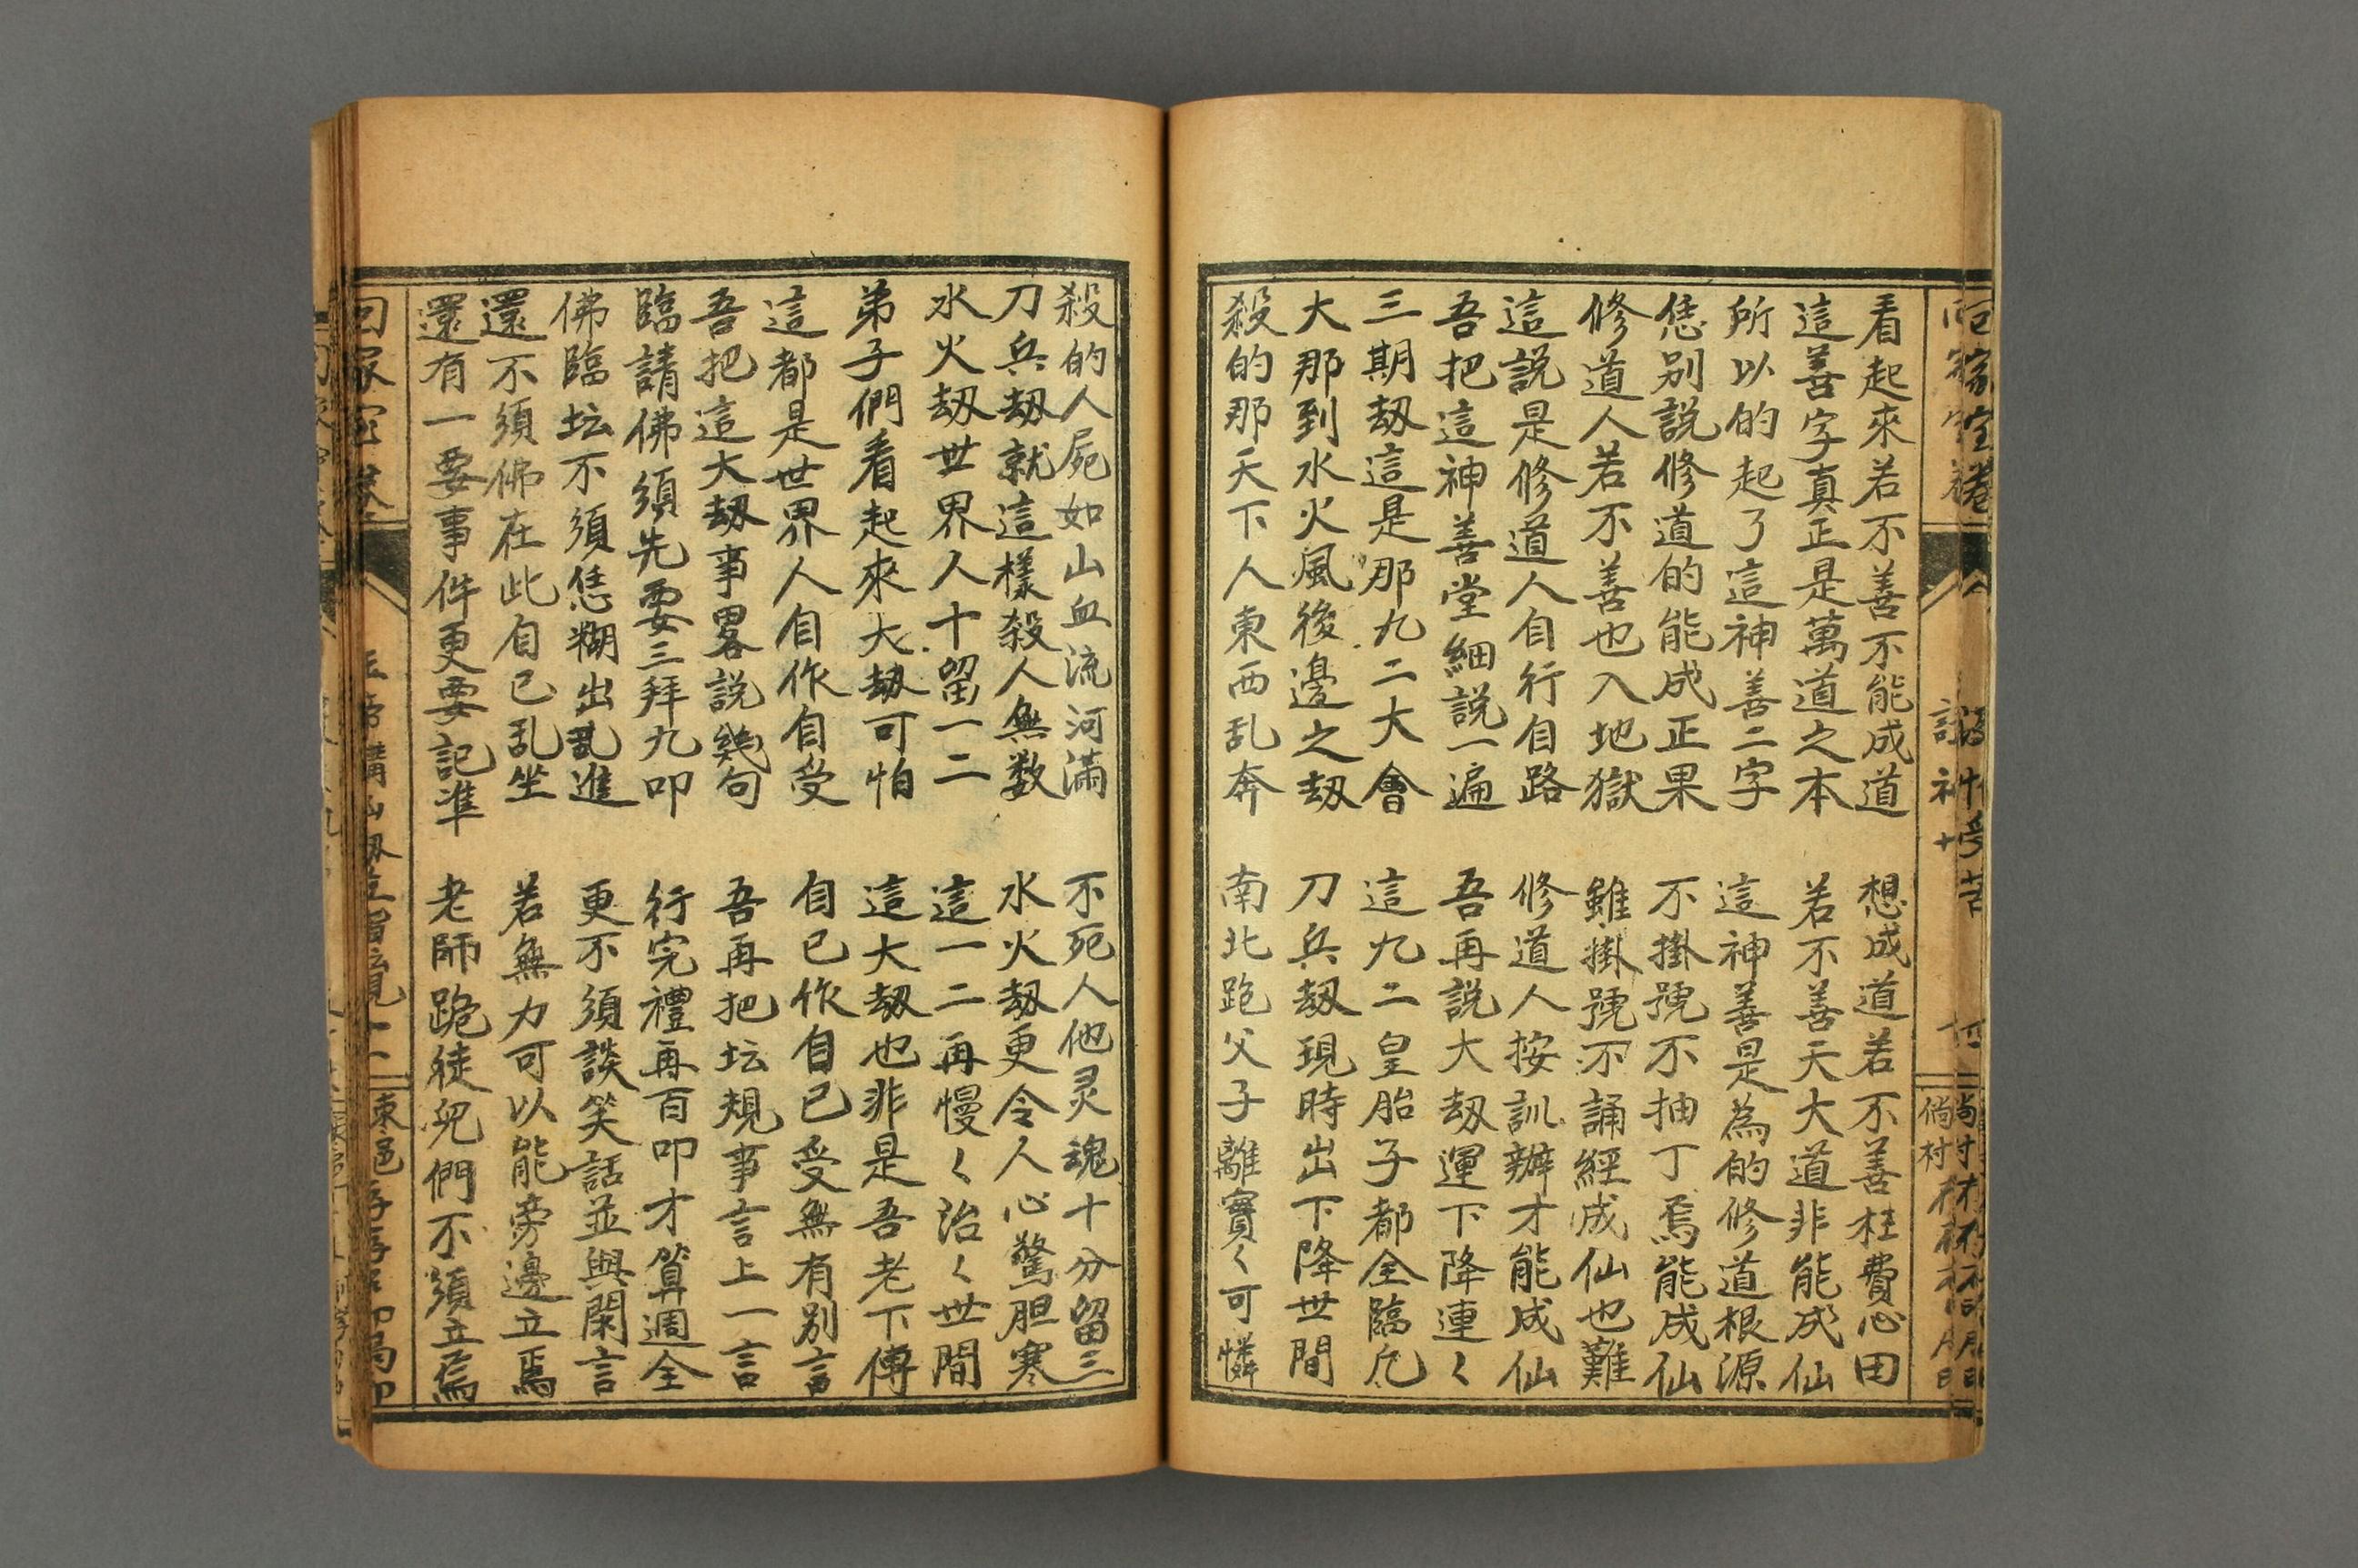 看起來若不善不能成道　想成道若不善枉費心田
這善字真正是萬道之本　若不善天大道非能成仙
所以的起了這神善二字　這神善是為的修道根源
恁别説修道的能成正果　不掛號不抽丁焉能成仙
修道人若不善也入地獄　雖掛號不誦經成仙也難
這説是修道人自行自路　修道人按訓辦才能成仙
吾把這神善堂細説一遍　吾再説大刼運下降連く
三期刼這是那九二大會　這九二皇胎子都全臨凢
大那到水火風後邊之刼　刀兵刼現時出下降世間
殺的那天下人東西乱奔　南北跑父子離實く可憐
殺的人屍如山血流河滿　不死人他灵魂十分留三
刀兵刼就這樣殺人無数　水火刼更令人心驚胆寒
水火刼世界人十留一二　這一二再慢く治く世間
弟子們看起來大刼可怕　這大刼也非是吾老下傳
這都是世界人自作自受　自已作自已受無有别言
吾把這大刼事畧説幾句　吾再把坛規事言上一言
臨請佛須先要三拜九叩　行完禮再百叩才算週全
佛臨坛不須恁糊出亂進　更不須談笑話並與閑言
還不須佛在此自已乱坐　若無力可以能旁邊立焉
還有一要事件更要記準　老師跪徒兒們不須立焉